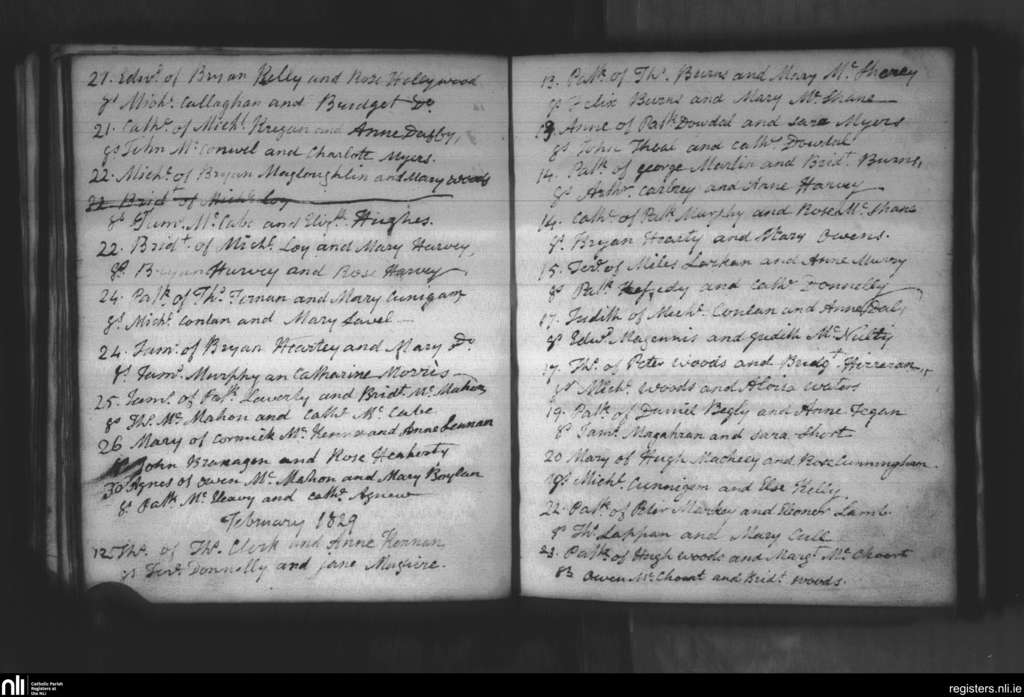 21. Edwd. of Bryan Kelly and Rose Holeywood
gs Michl. Callaghan and Bridget Do.
21. Cathe. of Michl. Kregan and Anne Dugby,
gs John Mc. Conwel and Charlott Myers.
22. Michl. of Bryan Magloughlin and Mary woods
22. Bridt. of Michl. Loy
gs Mc. Cabe and Hughes.
22. Bridt. of Michl. Loy and Mary Harvey,
gs Bryan Harvey and Rose Harvey
24. Patk. of Ths. Ternan and Mary Cunigam
gs Michl. Conlan and Mary Savel
24. Jams. of Bryan Hearley and Mary Do.
gs Jams. Murphy an Catharine Morris
25. Jams. of Patk. Laverty and Bridt. Mc. Mahon
gs Ths. Mc. Mahon and Cathe. Mc. Cabe
26 Mary of Cormick Mc. and Anne Lennan
gs John Branagen and Rose Heaherty
30 Agnes of Owen Mc. Mahon and Mary Boylan
gs Patk. Mc. Eleavy and Cathe. Agnew
February 1829
12 Ths. of Ths. Clerk and Anne Kernan
gs Donnolly and Jane Maguire.
13. Patk. of Ths. Burns and Mary Mc. Sherey
gs Felix Burns and Mary Mc. Shane
13 Anne of Patk. Dowdal and sara Myers
gs John and Cathe. Dowdal
14. Patk. of george Martin and Bridt. Burns,
gs Arthr. Carbrey and Anne Harvey
14. Cathe. of Patk. Murphy and Rose Mc. Shane
gs Bryan Hearty and Mary Owens.
15. of Miles Larkan and Anne Murry
gs Patk. and Cathe. Donnelly
17. Judith of Michl. Conlan and Anne Daly
gs Edwd. Magennis and Judith Mc. Nulty
17. Ths. of Peter Woods and Bridgt. Hirreran,
gs Michl. Woods and waters
19. Patk. of Daniel Begly and Anne Fegan
gs Jams. Magahran and sara Short
20 Mary of Hugh Macheey and Rose Cunningham.
gs Michl. Cunnigen and Else Kelly.
22. Patk. of Peter Markey and Eleoner Lamb.
gs Ths. Lappan and Mary Cull
23. Patk. of Hugh woods and Margt. Mc. Chourt
gs Owen Mc. Chourt and Bridt. woods.
nli
Catholic Parish
Registers at
the NLI
registers.nli.ie